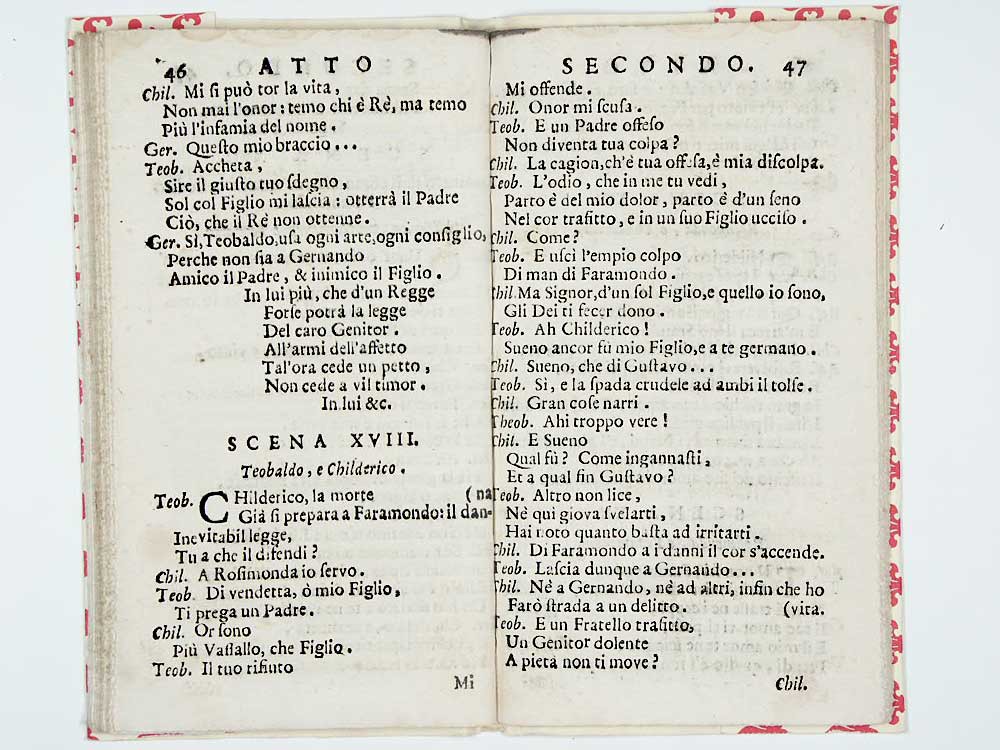 46 ATTO
Chil. Mi si può tor la vita,
Non mai l'onor: temo chi è Rè, ma temo
Più l'infamia del nome.
Ger. Questo mio braccio...
Teob. Accheta,
Sire il giusto tuo sdegno,
Sol col Figlio mi lascia: otterrà il Padre
Ciò, che il Rè non ottenne.
Ger. Sì, Teobaldo, usa ogni arte, ogni consiglio,
Perche non sia a Gernando
Amico il Padre, & inimico il Figlio.
In lui più, che d'un Regge
Forse potrà la legge
Del caro Genitor.
All'armi dell'affetto
Tal'ora cede un petto,
Non cede a vil timor.
In lui &c.
SCENA XVIII.
Teobaldo, e Childerico.
Teob. CHilderico, la morte (na
Già si prepara a Faramondo: il dan-
Inevitabil legge,
Tu a che il difendi?
Chil. A Rosimonda io servo.
Teob. Di vendetta, ò mio Figlio,
Ti prega un Padre.
Chil. Or sono
Più Vassallo, che Figlio.
Teob. Il tuo rifiuto
Mi
SECONDO. 47
Mi offende.
Chil. Onor mi scusa.
Teob. E un Padre offeso
Non diventa tua colpa?
Chil. La cagion, ch'è tua offesa, è mia discolpa.
Teob. L'odio, che in me tu vedi,
Parto è del mio dolor, parto è d'un seno
Nel cor trafitto, e in un suo Figlio ucciso.
Chil. Come?
Teob. E uscì l'empio colpo
Di man di Faramondo.
Chil. Ma Signor, d'un sol Figlio, e quello io sono,
Gli Dei ti fecer dono.
Teob. Ah Childerico!
Sueno ancor fù mio Figlio, e a te germano.
Chil. Sueno, che di Gustavo...
Teob. Sì, e la spada crudele ad ambi il tolse.
Chil. Gran cose narri.
Theob. Ahi troppo vere!
Chil. E Sueno
Qual fù? Come ingannasti,
Et a qual fin Gustavo?
Teob. Altro non lice,
Nè qui giova svelarti,
Hai noto quanto basta ad irritarti.
Chil. Di Faramondo a i danni il cor s'accende.
Teob. Lascia dunque a Gernando...
Chil. Nè a Gernando, nè ad altri, infin che ho
Farò strada a un delitto. (vita.
Teob. E un Fratello trafitto,
Un Genitor dolente
A pietà non ti move?
Chil.